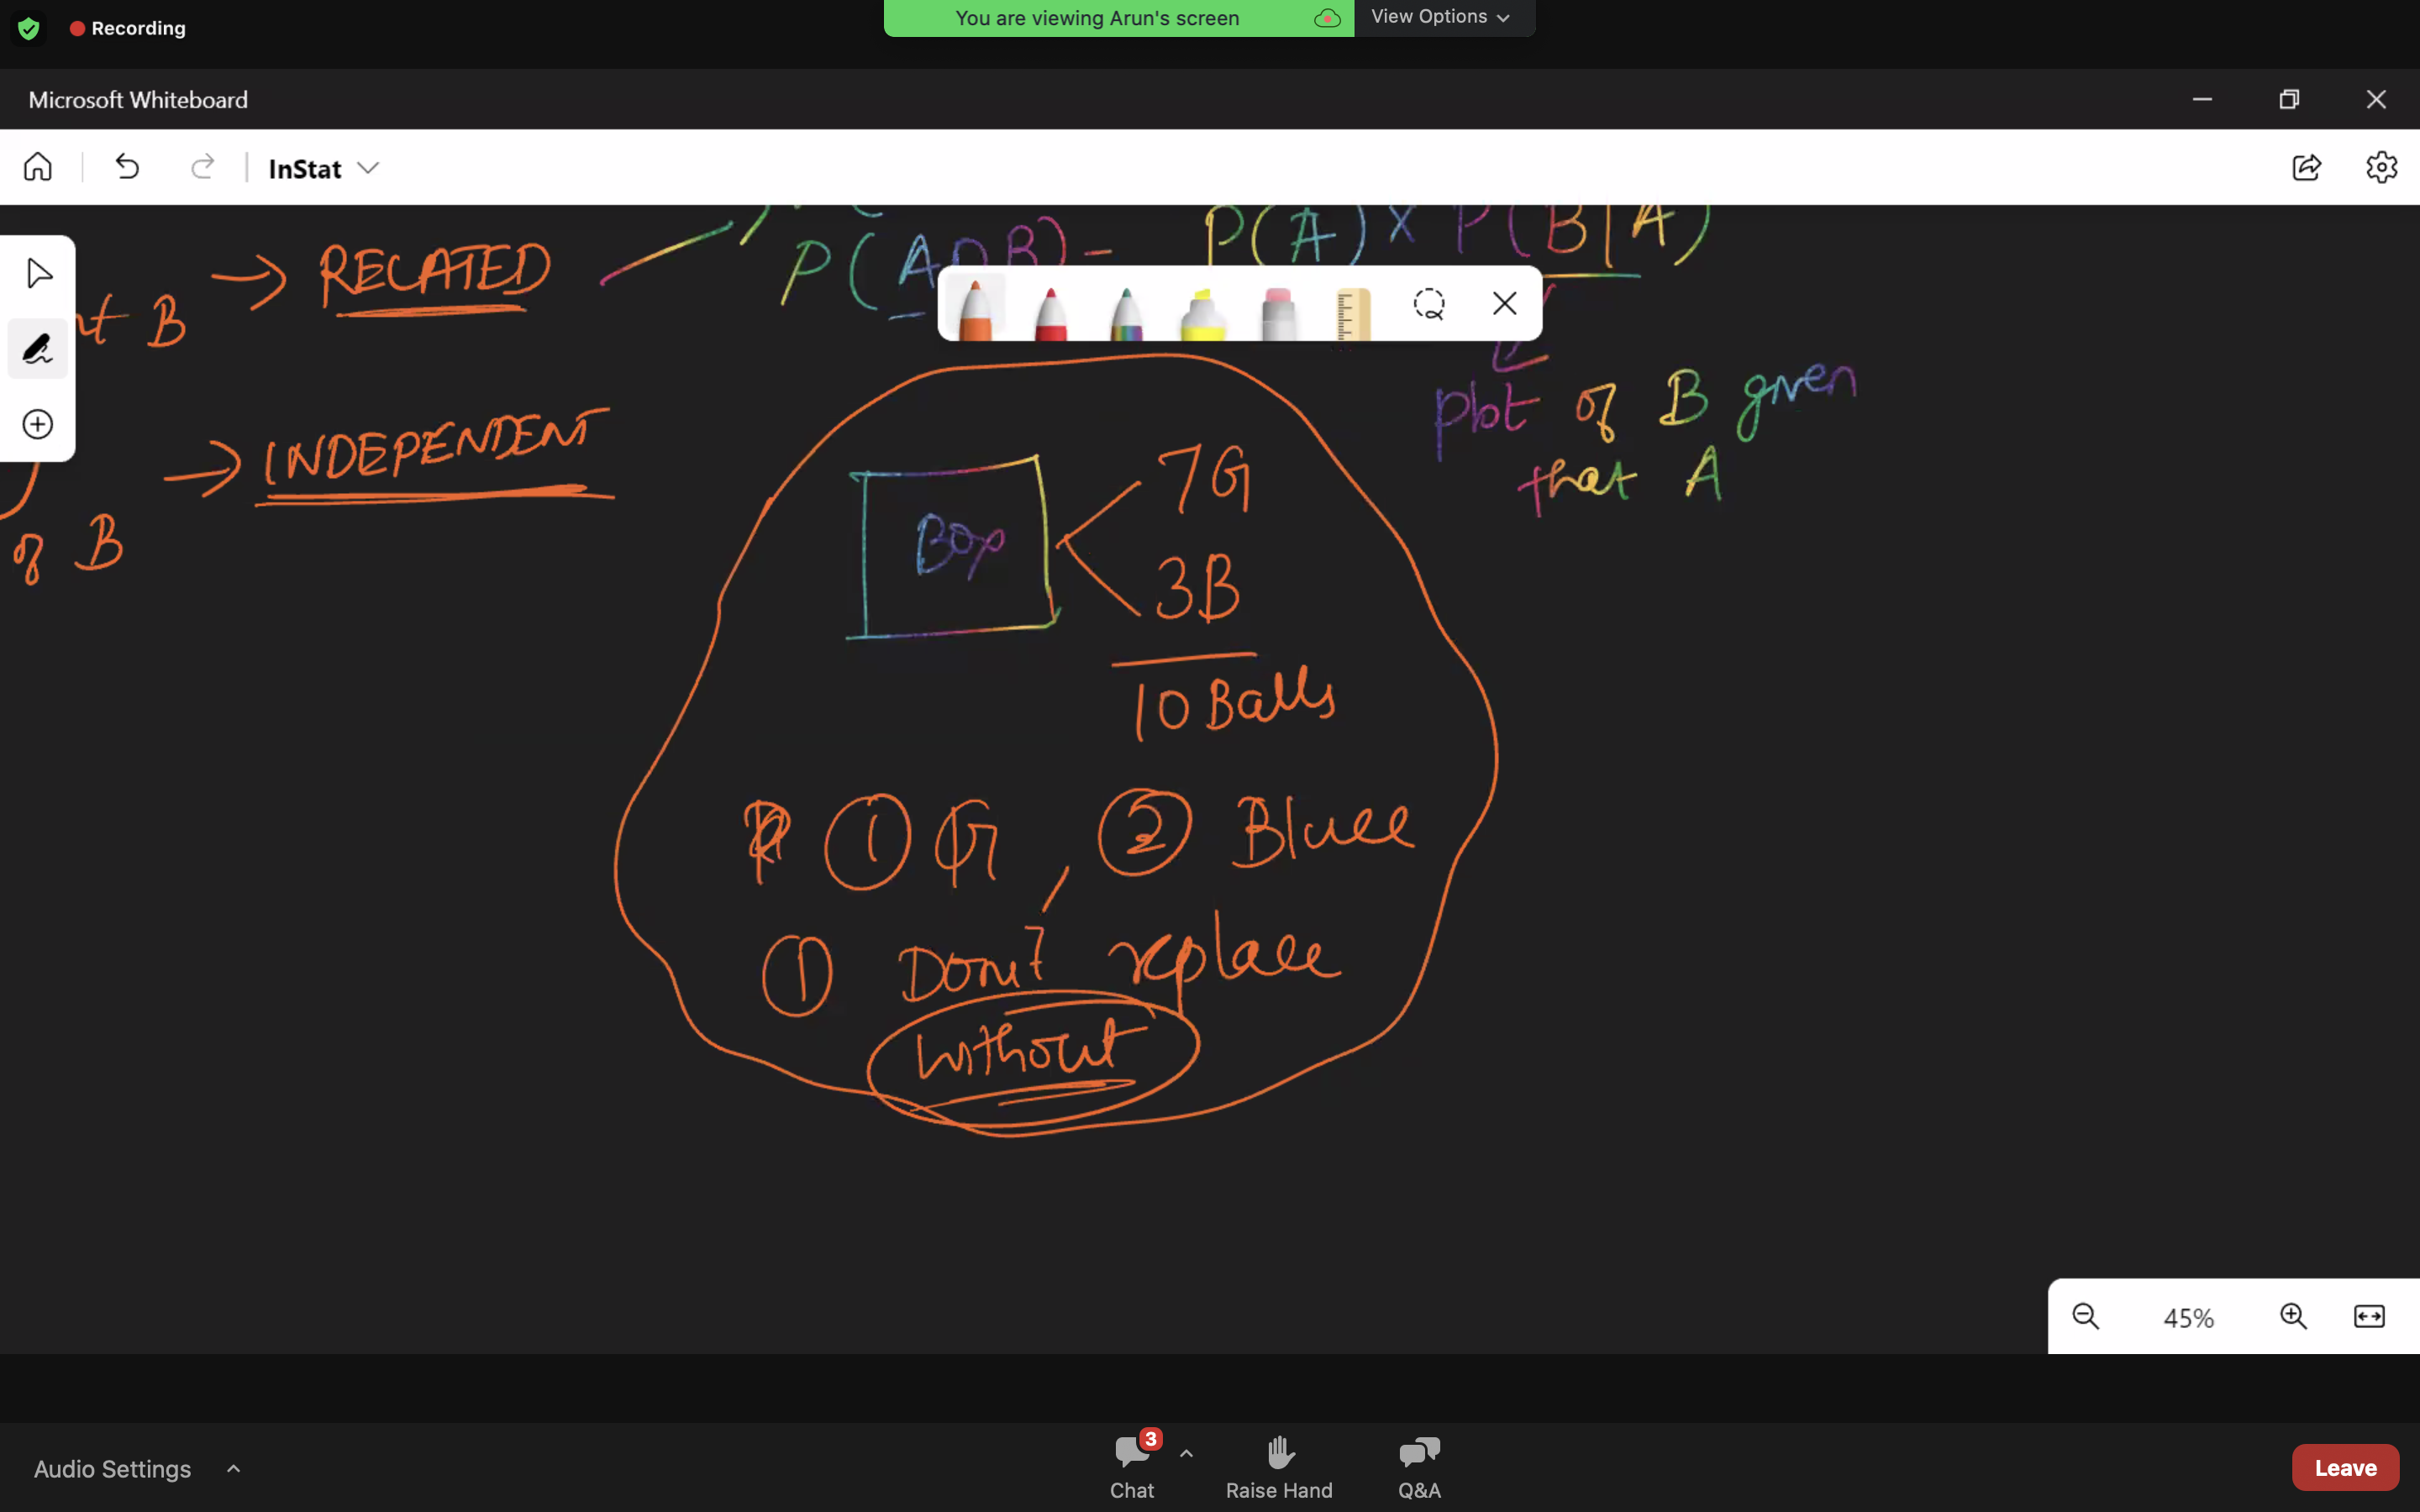 Recording
You are viewing Arun's screen
View Options
Microsoft Whiteboard
InStat
→ RELATED
P(A∩B) = P(A) x P(B|A)
nt B
→ INDEPENDENT
of B
of B given
that A
Box
7G
3B
10 Balls
① G, ② Bluee
① Don't replace
without
45%
Audio Settings
3
Chat
Raise Hand
Q&A
Leave